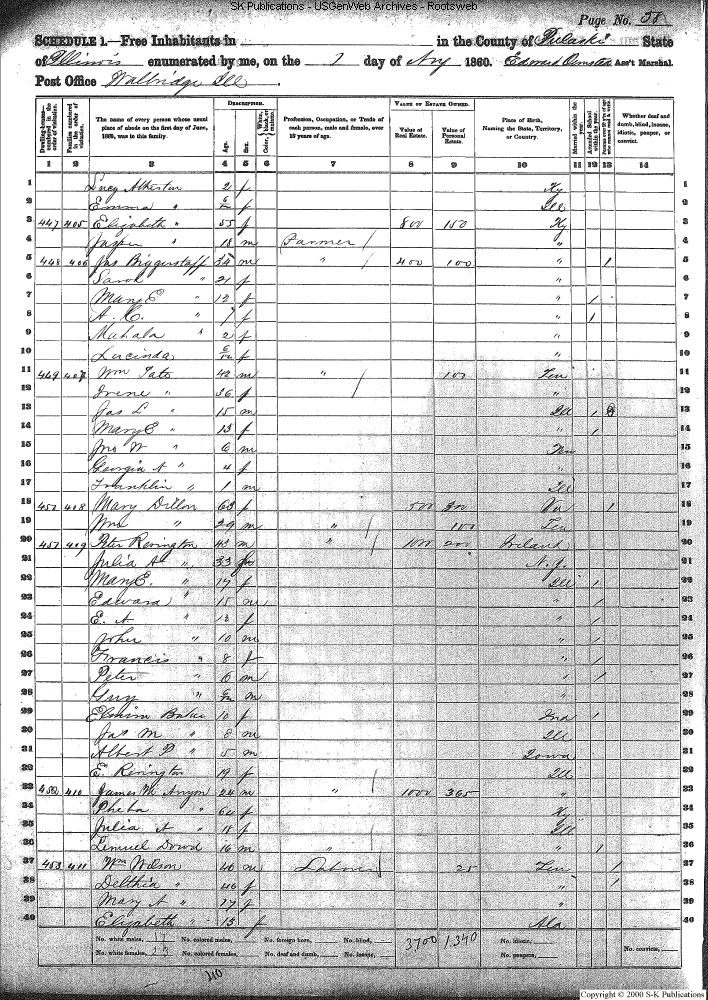 SK Publications - USGenWeb Archives - Rootsweb
Page No. 58
SCHEDULE 1.—Free Inhabitants in in the County of Pulaski State
of Illinois enumerated by me, on the 7 day of Aug 1860. Edward Olmsted Ass't Marshal.
Post Office Walbridge Ill.
Dwelling-houses— numbered in the order of visitation.
Families numbered in the order of visitation.
The name of every person whose usual place of abode on the first day of June, 1860, was in this family.
DESCRIPTION.
Age. Sex. Color,
Profession, Occupation, or Trade of each person, male and female, over 15 years of age.
VALUE OF ESTATE OWNED.
Value of Real Estate. Value of Personal Estate.
Place of Birth, Naming the State, Territory, or Country.
Married within the year. Attended School within the year.
Whether deaf and dumb, blind, insane, idiotic, pauper, or convict.
1 2 3 4 5 6 7 8 9 10 11 12 13 14
1 Lucy Atherton 2 f Ky 1
2 Emma " f Ill 2
3 447 405 Elizabeth " 55 f 800 150 Ky 3
4 Jasper " 18 m Farmer / " 4
5 448 406 Jas Biggerstaff 34 m " / 400 100 " / 5
6 Sarah " 21 f " 6
7 Mary E " 12 f " / 7
8 A. C. " 7 f " / 8
9 Mahala " 2 f " 9
10 Lucinda f " 10
11 449 407 Wm Tate 42 m " / 100 Ten 11
12 Irene " 36 f " 12
13 Jas L " 15 m Ill / 13
14 Mary E " 13 f " / 14
15 Jno W " 6 m Ten 15
16 Georgia A " 4 f " 16
17 Franklin " 1 m Ill 17
18 408 Mary Dillon 63 f 500 300 Va / 18
19 Wm " 29 m " / 100 Ten 19
20 409 Peter Revington 43 m " / 1000 200 Ireland 20
21 Julia A " 33 f N.Y. 21
22 Mary E. " 17 f Ill / 22
23 Edward " 15 m " / 23
24 E. A " 12 f " / 24
25 John " 10 m " / 25
26 Francis " 8 f " / 26
27 Peter " 6 m " / 27
28 Guy " m " 28
29 Baker 10 f Ind / 29
30 Jas M " 8 m Ill 30
31 Albert P " 5 m Iowa 31
32 E. Revington 19 f Ill 32
33 410 James M Anyon 24 m " / 1000 365 " 33
34 Pheba " 60 f Ky 34
35 Julia A " 18 f Ill 35
36 Lemuel Dowd 16 m " " / 36
37 453 411 Wm Wilson 40 m Laborer / 25 Ten / 37
38 Delthia " 46 f " / 38
39 Mary A " 17 f " 39
40 Elizabeth " 13 f Ala 40
No. white males, No. colored males, No. foreign born, No. blind, 3700 1340 No. idiotic,
No. white females, No. colored females, No. deaf and dumb, No. insane, No. paupers, No. convicts,
Copyright © 2000 S-K Publications